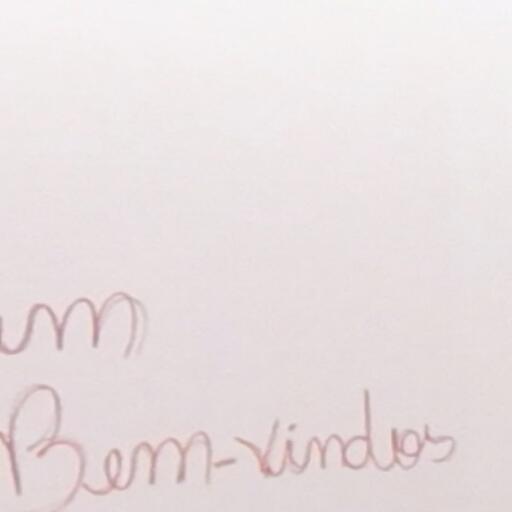 um
Bem-vindos